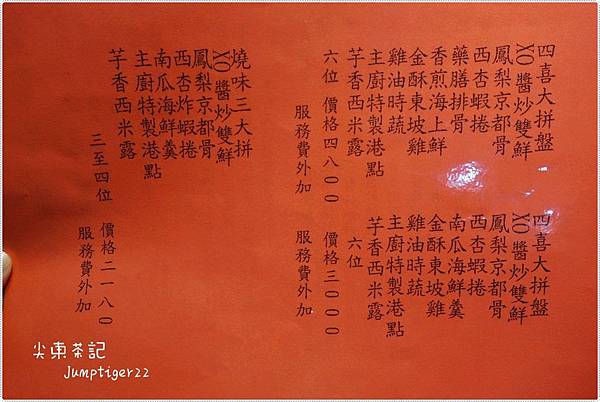 四喜大拼盤
XO醬炒雙鮮
鳳梨京都骨
西杏蝦捲
藥膳排骨
香煎海上鮮
金酥東坡雞
雞油時蔬
主廚特製港點
芋香西米露
六位 價格四八００
服務費外加
四喜大拼盤
XO醬炒雙鮮
鳳梨京都骨
西杏蝦捲
南瓜海鮮羹
金酥東坡雞
雞油時蔬
主廚特製港點
芋香西米露
六位
價格三０００
服務費外加
燒味三大拼
XO醬炒雙鮮
鳳梨京都骨
西杏炸蝦捲
南瓜海鮮羹
主廚特製港點
芋香西米露
三至四位 價格二一八０
服務費外加
尖東茶記
Jumptiger22